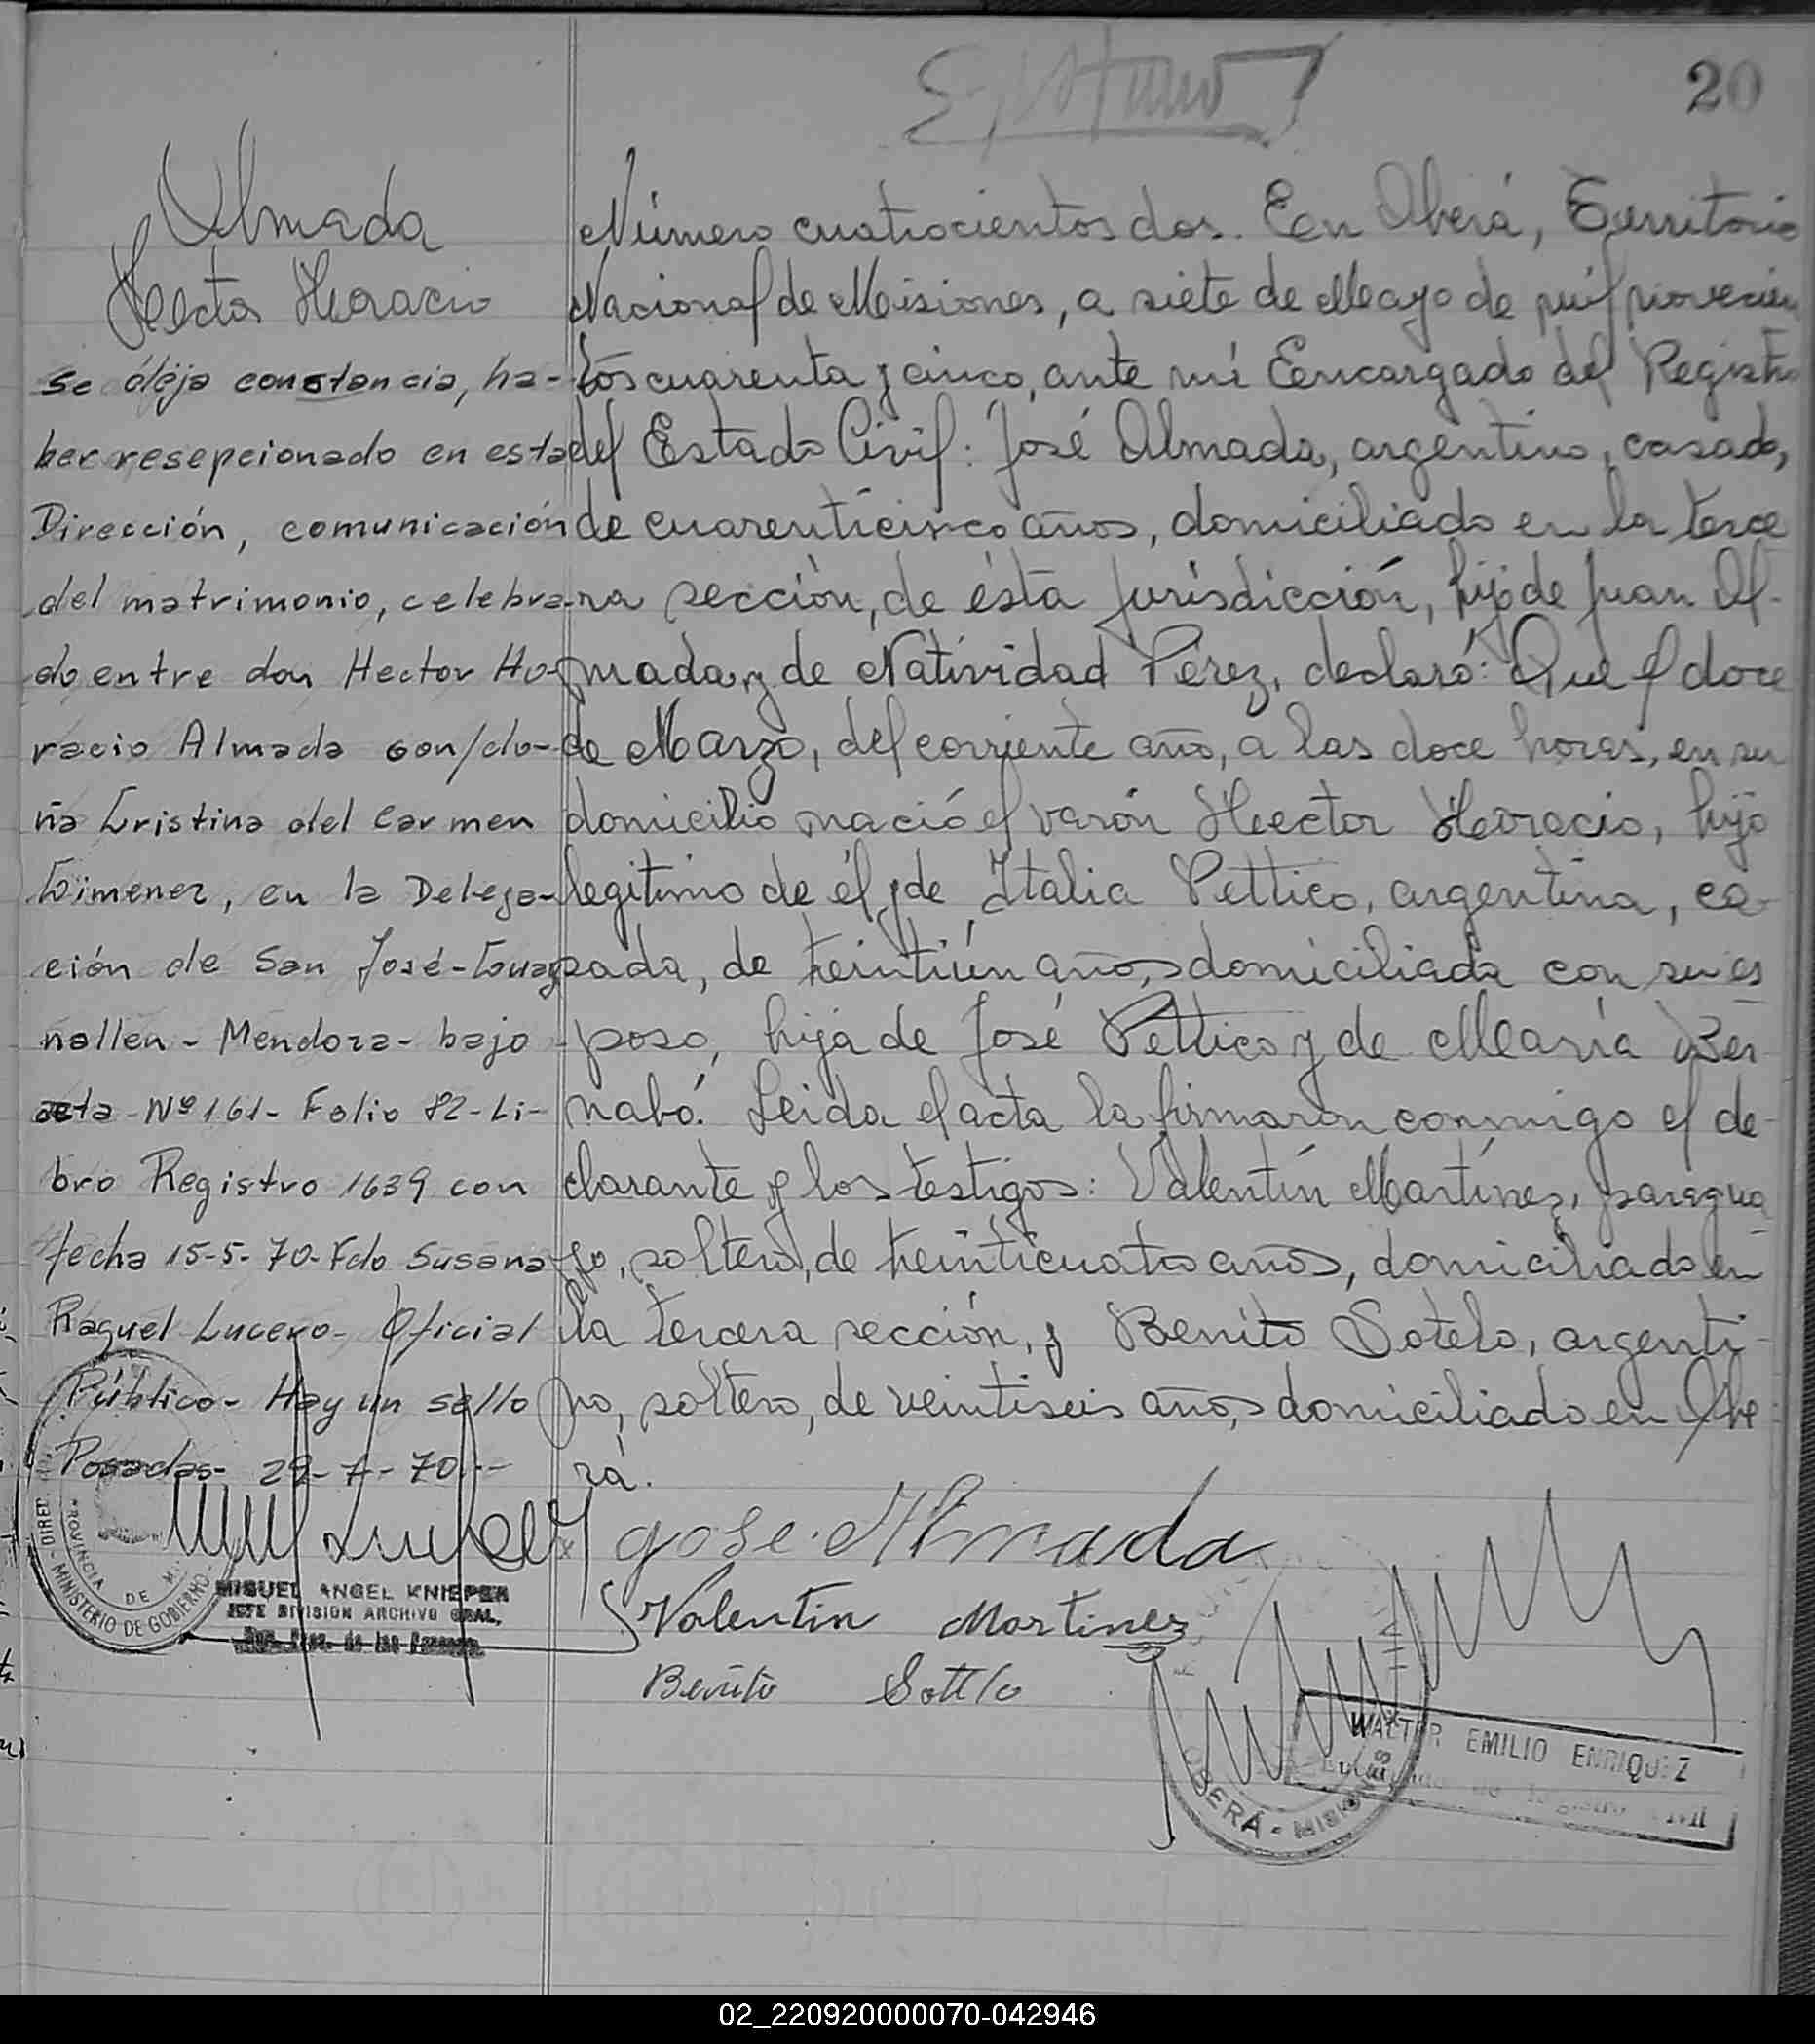 20
Almada
Hector Horacio
se deja constancia, ha-
ber resepcionado en esta
Dirección, comunicación
del matrimonio, celebra-
do entre don Hector Ho-
racio Almada con/do-
ña Cristina del Carmen
Gimenez, en la Delega-
ción de San José-Guay
nallen - Mendoza - bajo
acta - Nº 161 - Folio 82 - Li-
bro Registro 1639 con
fecha 15-5-70 - Fdo Susana
Raquel Lucero - Oficial
Público - Hay un sello
Posadas - 29-7-70 --
MIGUEL ANGEL KNIEPER
JEFE DIVISION ARCHIVO GRAL.
PROVINCIA DE
MINISTERIO DE GOBIERNO
Número cuatrocientos dos. En Oberá, Territorio
Nacional de Misiones, a siete de Mayo de mil novecien
tos cuarenta y cinco, ante mí Encargado del Registro
del Estado Civil: José Almada, argentino, casado,
de cuarenticinco años, domiciliado en la terce
ra sección, de ésta jurisdicción, hijo de Juan Al-
mada, y de Natividad Pérez, declaró: Que el doce
de Marzo, del corriente año, a las doce horas, en su
domicilio nació el varón Hector Horacio, hijo
legitimo de él y de Italia Pettico, argentina, ca-
sada, de treintiún años, domiciliada con su es
poso, hija de José Pettico y de María Ber
nabó. Leida el acta la firmaron conmigo el de-
clarante y los testigos: Valentín Martínez, paragua
yo, soltero, de treinticuatro años, domiciliado en
la tercera sección, y Benito Sotelo, argenti-
no, soltero, de veintiseis años, domiciliado en Obe
rá.
Jose Almada
Valentin Martinez
Benito Sottlo
WALTER EMILIO ENRIQUEZ
OBERÁ - MISIONES
02_220920000070-042946